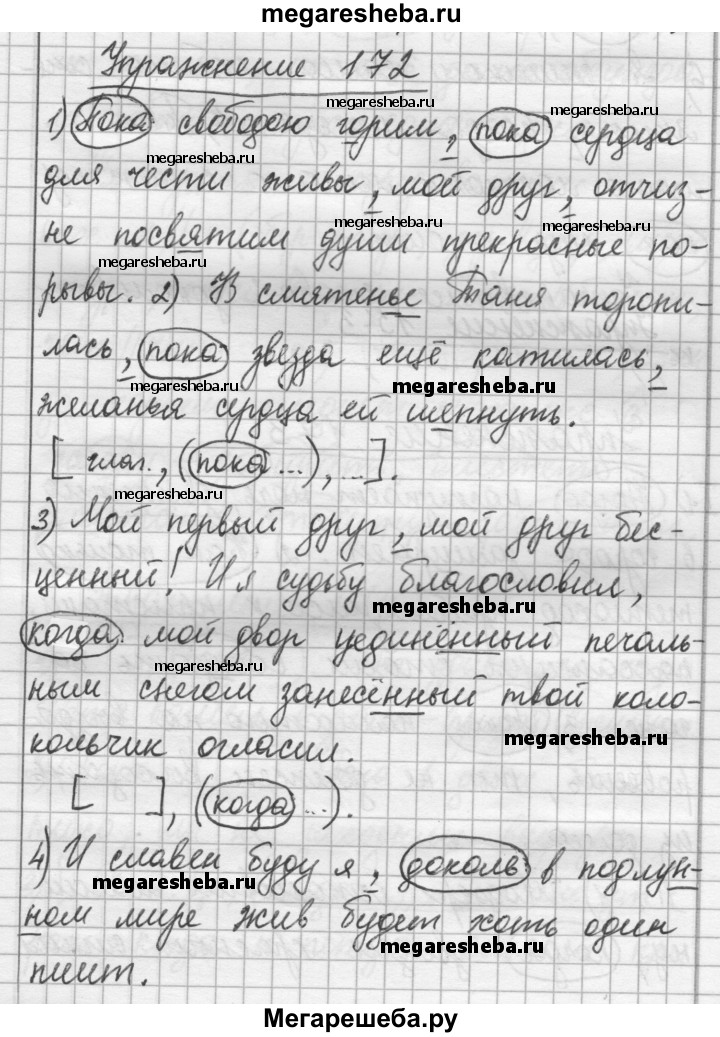 megaresheba.ru
Упражнение 172
megaresheba.ru
1) Пока свободою горим, пока сердца
megaresheba.ru
megaresheba.ru
для чести живы, мой друг, отчиз-
megaresheba.ru
megaresheba.ru
не посвятим души прекрасные по-
megaresheba.ru
рывы. 2) В смятенье Таня торопи-
лась, пока звезда ещё катилась,
megaresheba.ru
megaresheba.ru
желанья сердца ей шепнуть.
[ глаг., (пока ...), ...].
megaresheba.ru
3) Мой первый друг, мой друг бес-
ценный! И я судьбу благословил,
megaresheba.ru
когда мой двор уединённый печаль-
megaresheba.ru
ным снегом занесённый твой коло-
кольчик огласил.
megaresheba.ru
[ ], (когда ...).
4) И славен буду я, доколь в подлун-
megaresheba.ru
ном мире жив будет хоть один
megaresheba.ru
пиит.
Мегарешеба.ру